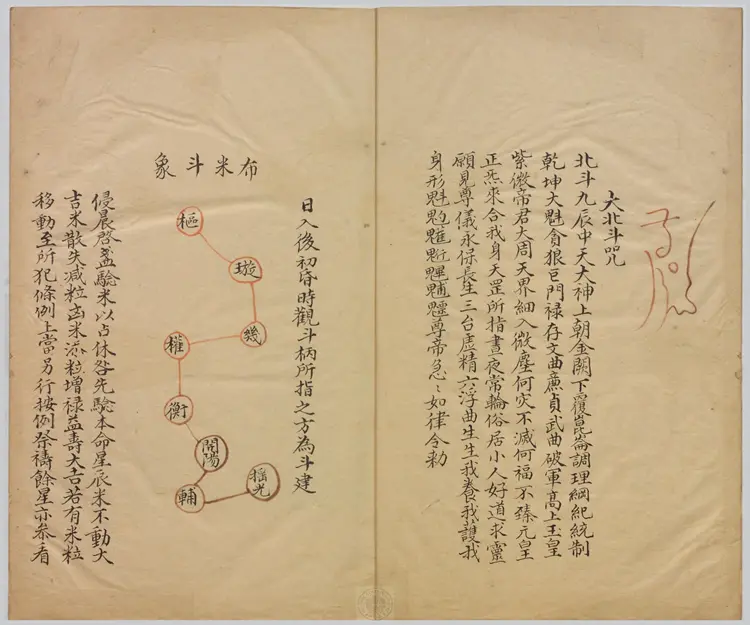 大北斗咒
北斗九辰中天大神上朝金闕下覆崑崙調理綱紀統制
乾坤大魁貪狼巨門禄存文曲廉貞武曲破軍高上玉皇
紫微帝君大周天界細入微塵何灾不滅何福不臻元皇
正炁來合我身天罡所指晝夜常輪俗居小人好道求靈
願見尊儀永保長生三台虚精六浮曲生生我養我護我
身形魁𩲃䰢魓䰠魒尊帝急〻如律令勅
日入後初昏時觀斗柄所指之方為斗建
布米斗象
樞
璇
幾
權
衡
開陽
輔
摇光
侵晨啓盖驗米以占休咎先驗本命星辰米不動大
吉米散失减粒凶米添粒增禄益壽大吉若有米粒
移動至所犯條例上當另行按例祭禱餘星亦叅看